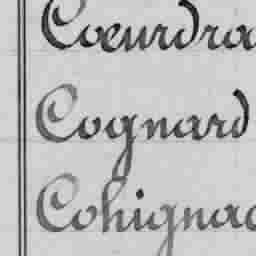 Coeurdro
Cognard
Cohignac